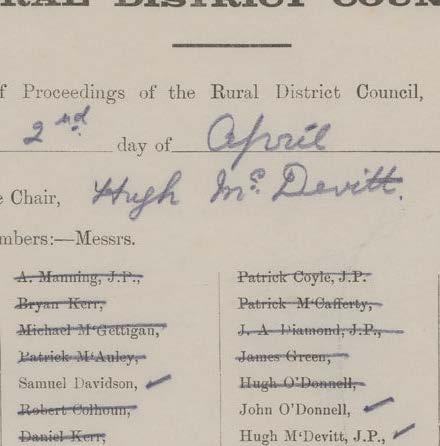 RAL DISTRICT COUN
f Proceedings of the Rural District Council,
2nd day of April
e Chair, Hugh Mc. Devitt.
mbers:—Messrs.
A. Manning, J.P.,
Bryan Kerr,
Michael M‘Gettigan,
Patrick M‘Auley,
Samuel Davidson,
Robert Colhoun,
Daniel Kerr,
Patrick Coyle, J.P.
Patrick M‘Cafferty,
J. A. Diamond, J.P.,
James Green,
Hugh O’Donnell,
John O’Donnell,
Hugh M‘Devitt, J.P.,